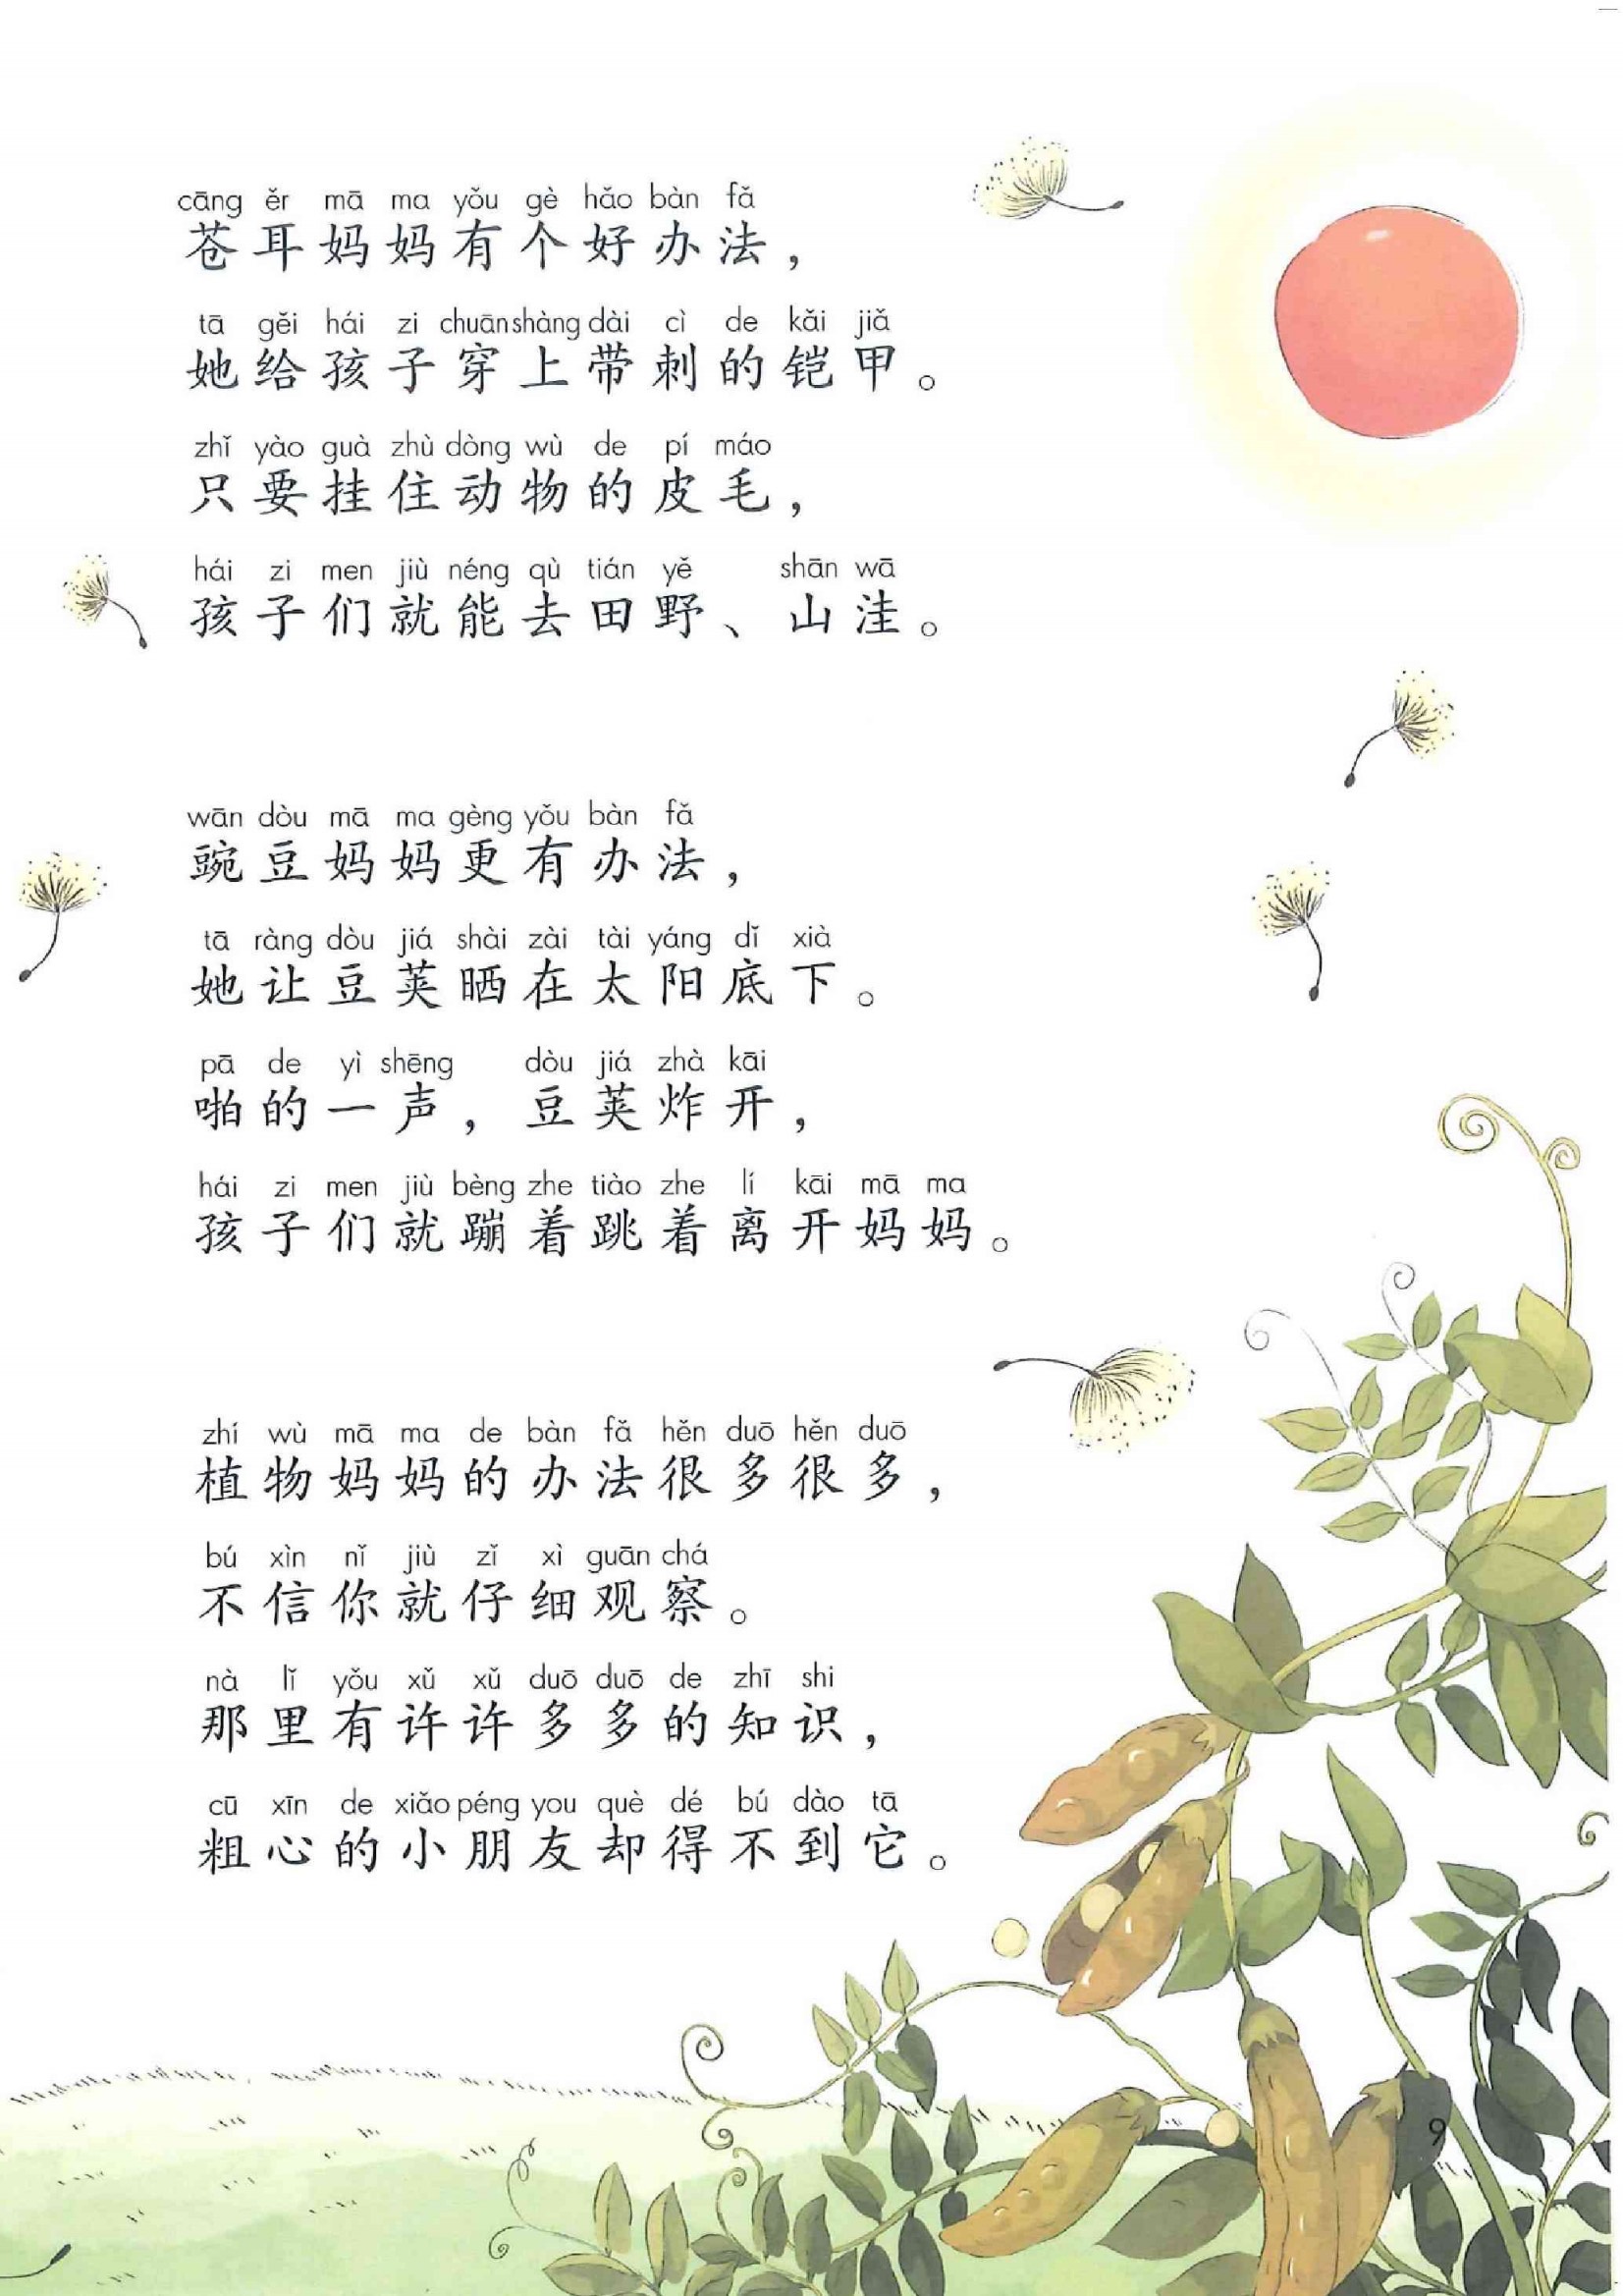 cāng ěr mā ma yǒu gè hǎo bàn fǎ
苍耳妈妈有个好办法，
tā gěi hái zi chuān shàng dài cì de kǎi jiǎ
她给孩子穿上带刺的铠甲。
zhǐ yào guà zhù dòng wù de pí máo
只要挂住动物的皮毛，
hái zi men jiù néng qù tián yě shān wā
孩子们就能去田野、山洼。
wān dòu mā ma gèng yǒu bàn fǎ
豌豆妈妈更有办法，
tā ràng dòu jiá shài zài tài yáng dǐ xià
她让豆荚晒在太阳底下。
pā de yì shēng dòu jiá zhà kāi
啪的一声，豆荚炸开，
hái zi men jiù bèng zhe tiào zhe lí kāi mā ma
孩子们就蹦着跳着离开妈妈。
zhí wù mā ma de bàn fǎ hěn duō hěn duō
植物妈妈的办法很多很多，
bú xìn nǐ jiù zǐ xì guān chá
不信你就仔细观察。
nà lǐ yǒu xǔ xǔ duō duō de zhī shi
那里有许许多多的知识，
cū xīn de xiǎo péng you què dé bú dào tā
粗心的小朋友却得不到它。
9